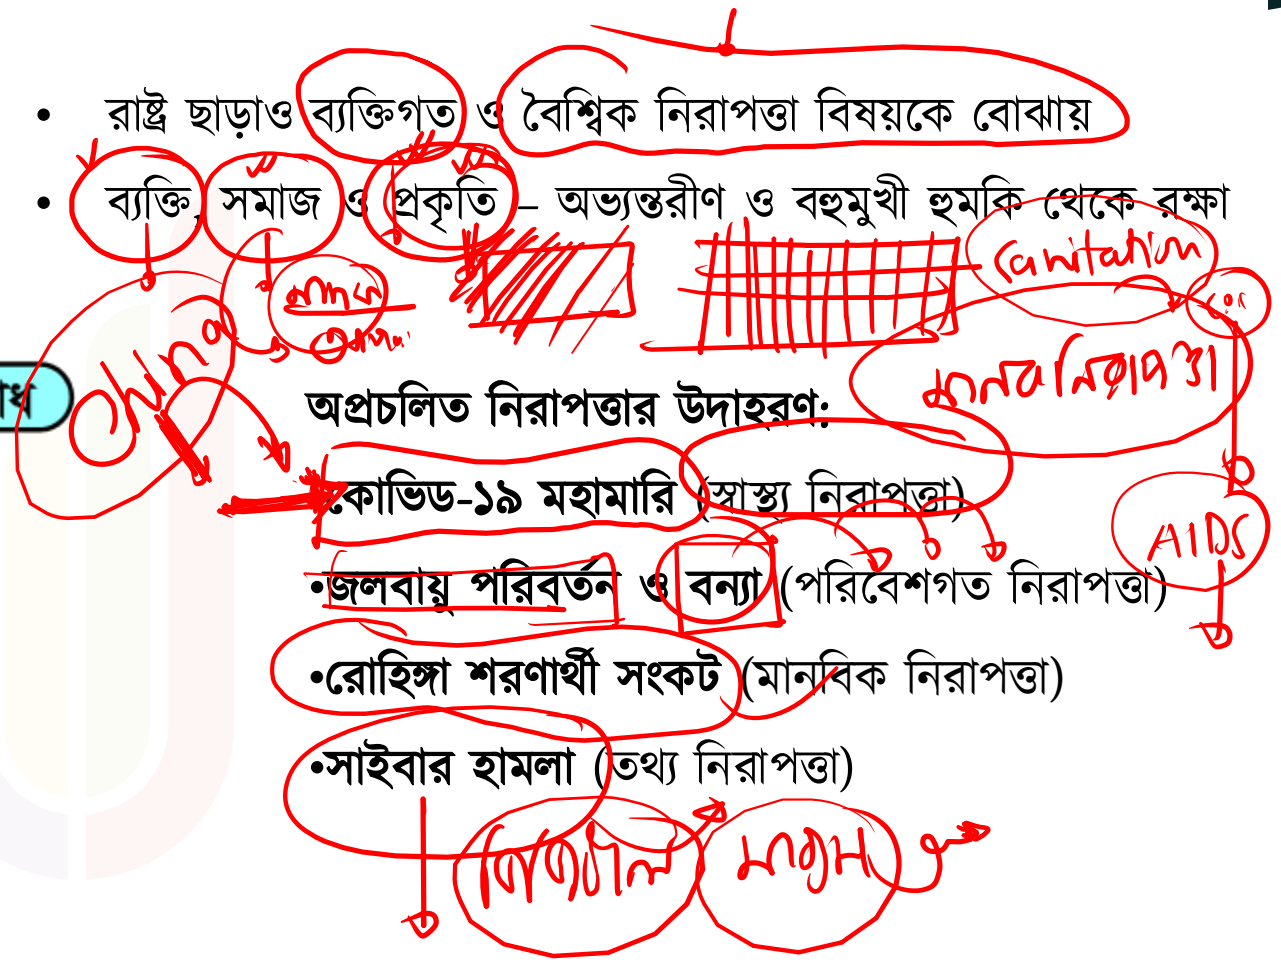 • রাষ্ট্র ছাড়াও ব্যক্তিগত ও বৈশ্বিক নিরাপত্তা বিষয়কে বোঝায়
• ব্যক্তি, সমাজ ও প্রকৃতি – অভ্যন্তরীণ ও বহুমুখী হুমকি থেকে রক্ষা
Sanitation
China
মানবনিরাপত্তা
অপ্রচলিত নিরাপত্তার উদাহরণ:
•কোভিড-১৯ মহামারি (স্বাস্থ্য নিরাপত্তা)
AIDS
•জলবায়ু পরিবর্তন ও বন্যা (পরিবেশগত নিরাপত্তা)
•রোহিঙ্গা শরণার্থী সংকট (মানবিক নিরাপত্তা)
•সাইবার হামলা (তথ্য নিরাপত্তা)